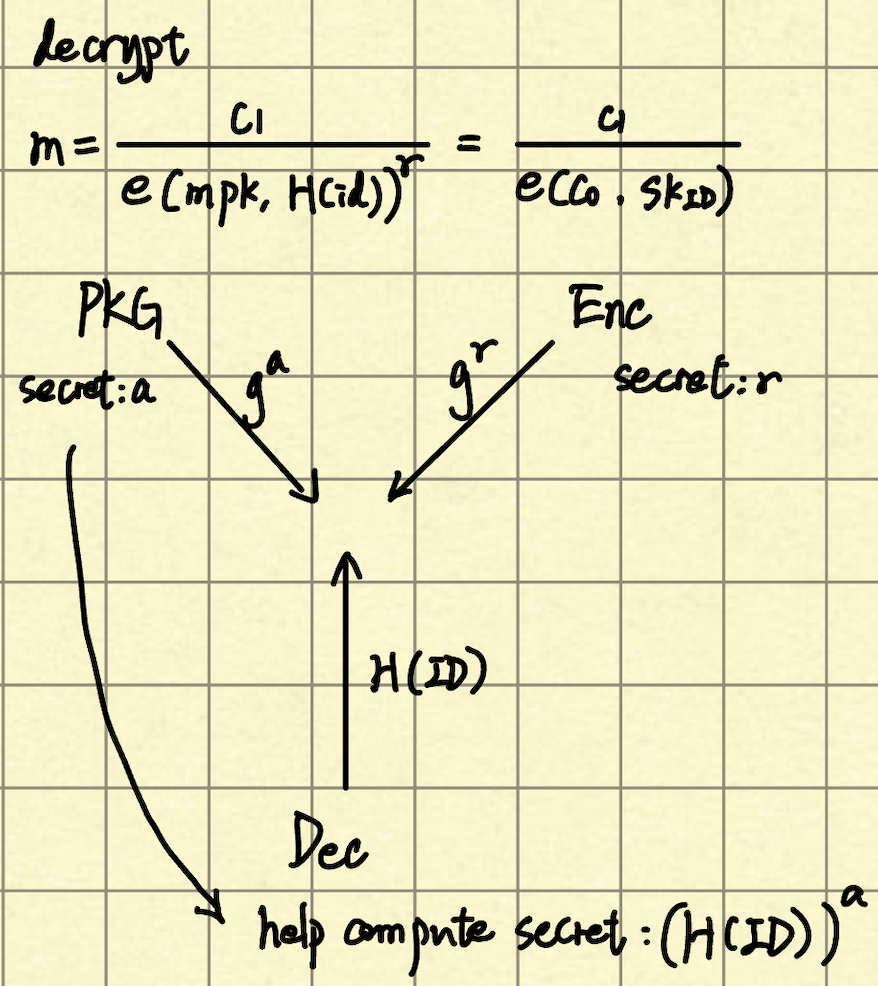 decrypt
m = C1 / e(mpk, H(id))^r = C1 / e(C0, SkID)
PKG
Enc
secret: a
g^a
g^r
secret: r
H(ID)
Dec
help compute secret: (H(ID))^a